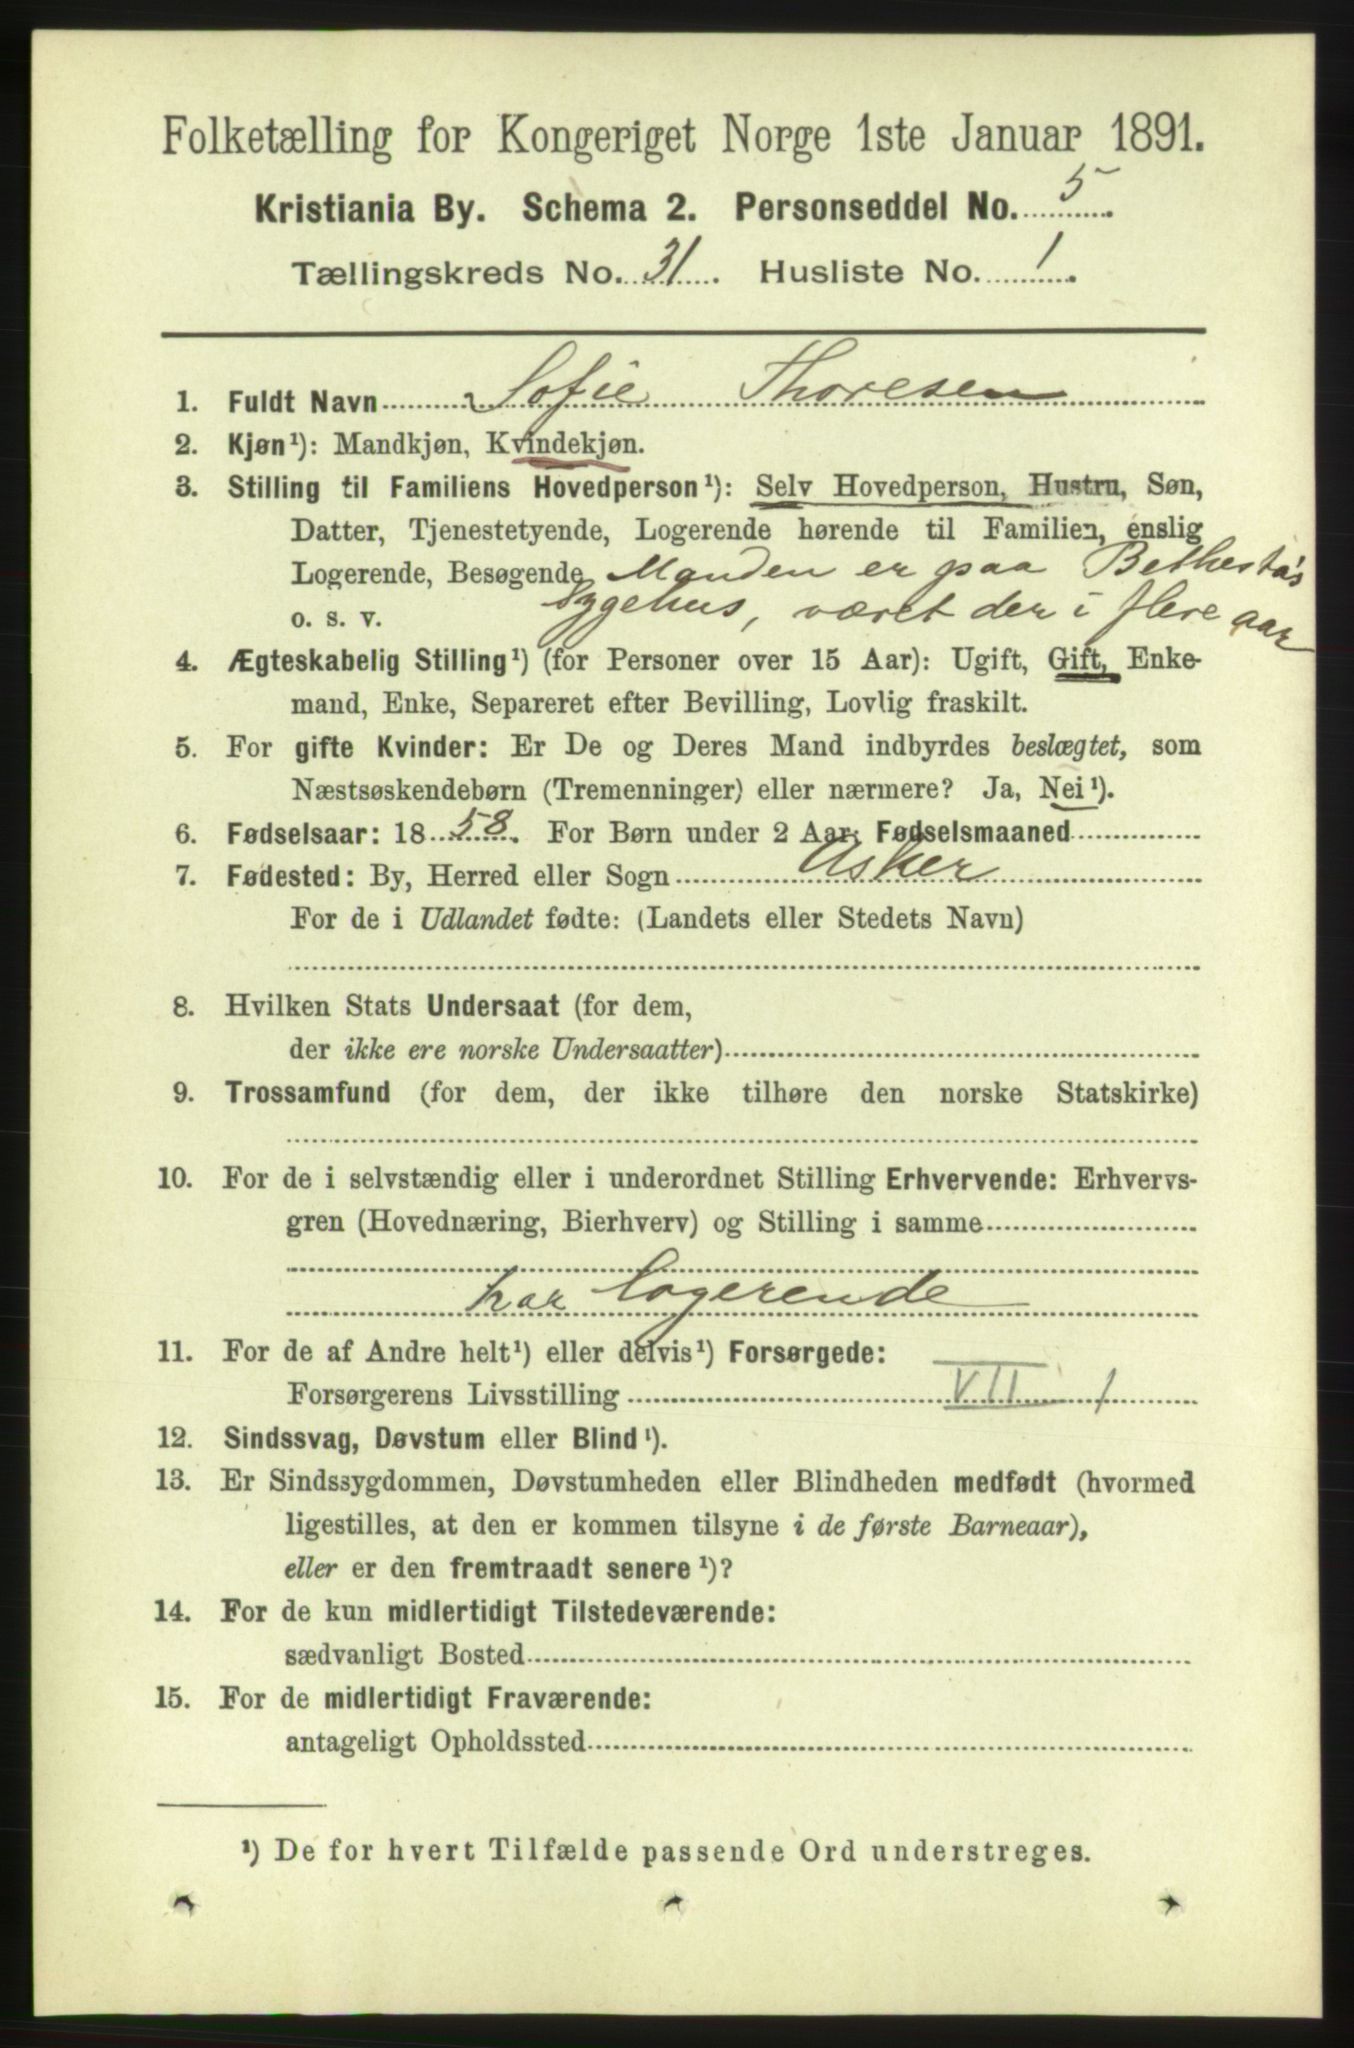 Folketælling for Kongeriget Norge 1ste Januar 1891.
Kristiania By. Schema 2. Personseddel No. 5.
Tællingskreds No. 31. Husliste No. 1.
1. Fuldt Navn Sofie Thoresen
2. Kjøn¹): Mandkjøn, Kvindekjøn.
3. Stilling til Familiens Hovedperson¹): Selv Hovedperson, Hustru, Søn,
Datter, Tjenestetyende, Logerende hørende til Familien, enslig
Logerende, Besøgende Manden er paa Bethesta's
o. s. v. Sygehus, været der i flere aar
4. Ægteskabelig Stilling¹) (for Personer over 15 Aar): Ugift, Gift, Enke-
mand, Enke, Separeret efter Bevilling, Lovlig fraskilt.
5. For gifte Kvinder: Er De og Deres Mand indbyrdes beslægtet, som
Næstsøskendebørn (Tremenninger) eller nærmere? Ja, Nei¹).
6. Fødselsaar: 1858. For Børn under 2 Aar: Fødselsmaaned
7. Fødested: By, Herred eller Sogn Asker
For de i Udlandet fødte: (Landets eller Stedets Navn)
8. Hvilken Stats Undersaat (for dem,
der ikke ere norske Undersaatter)
9. Trossamfund (for dem, der ikke tilhøre den norske Statskirke)
10. For de i selvstændig eller i underordnet Stilling Erhvervende: Erhvervs-
gren (Hovednæring, Bierhverv) og Stilling i samme
har logerende
11. For de af Andre helt¹) eller delvis¹) Forsørgede:
Forsørgerens Livsstilling VII 1
12. Sindssvag, Døvstum eller Blind¹).
13. Er Sindssygdommen, Døvstumheden eller Blindheden medfødt (hvormed
ligestilles, at den er kommen tilsyne i de første Barneaar),
eller er den fremtraadt senere¹)?
14. For de kun midlertidigt Tilstedeværende:
sædvanligt Bosted
15. For de midlertidigt Fraværende:
antageligt Opholdssted
¹) De for hvert Tilfælde passende Ord understreges.